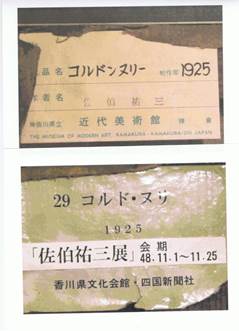 品名 コルドンヌリー 制作年 1925
作者名 佐伯祐三
神奈川県立 近代美術館 鎌倉
THE MUSEUM OF MODERN ART, KAMAKURA·KAMAKURA-SHI JAPAN
29 コルド・ヌリ
1925
「佐伯祐三展」 会期 48.11.1～11.25
香川県文化会館・四国新聞社